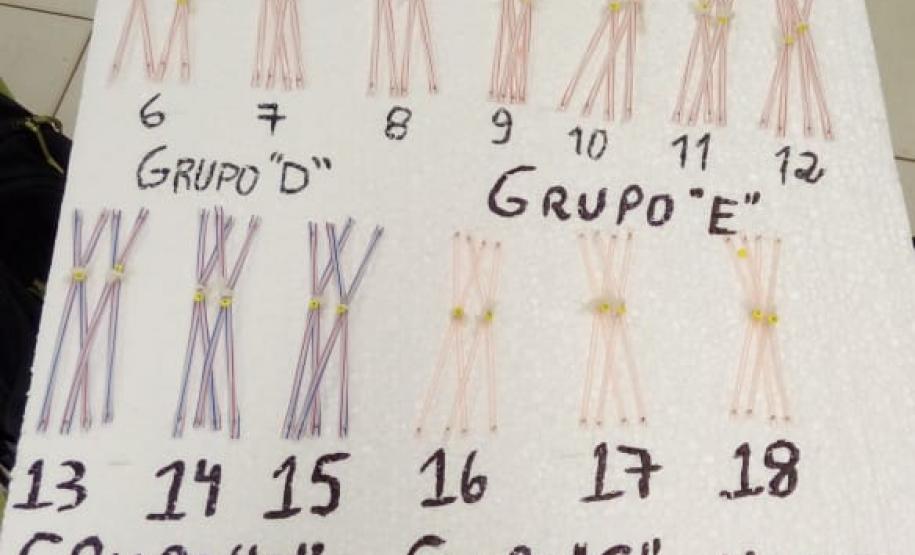 6 7 8 9 10 11 12
GRUPO "D" GRUPO "E"
13 14 15 16 17 18